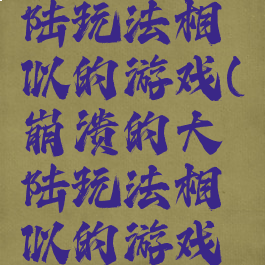 陆玩法相
似的游戏(
崩溃的大
陆玩法相
似的游戏